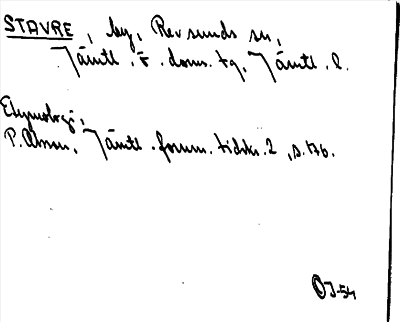 STAVRE, by, Revsunds sn,
Jämtl. ö. doms. tg, Jämtl. l.
Etymologi;
P. Olsson, Jämtl. fornm. tidskr. 2, s. 176.
OJ-54